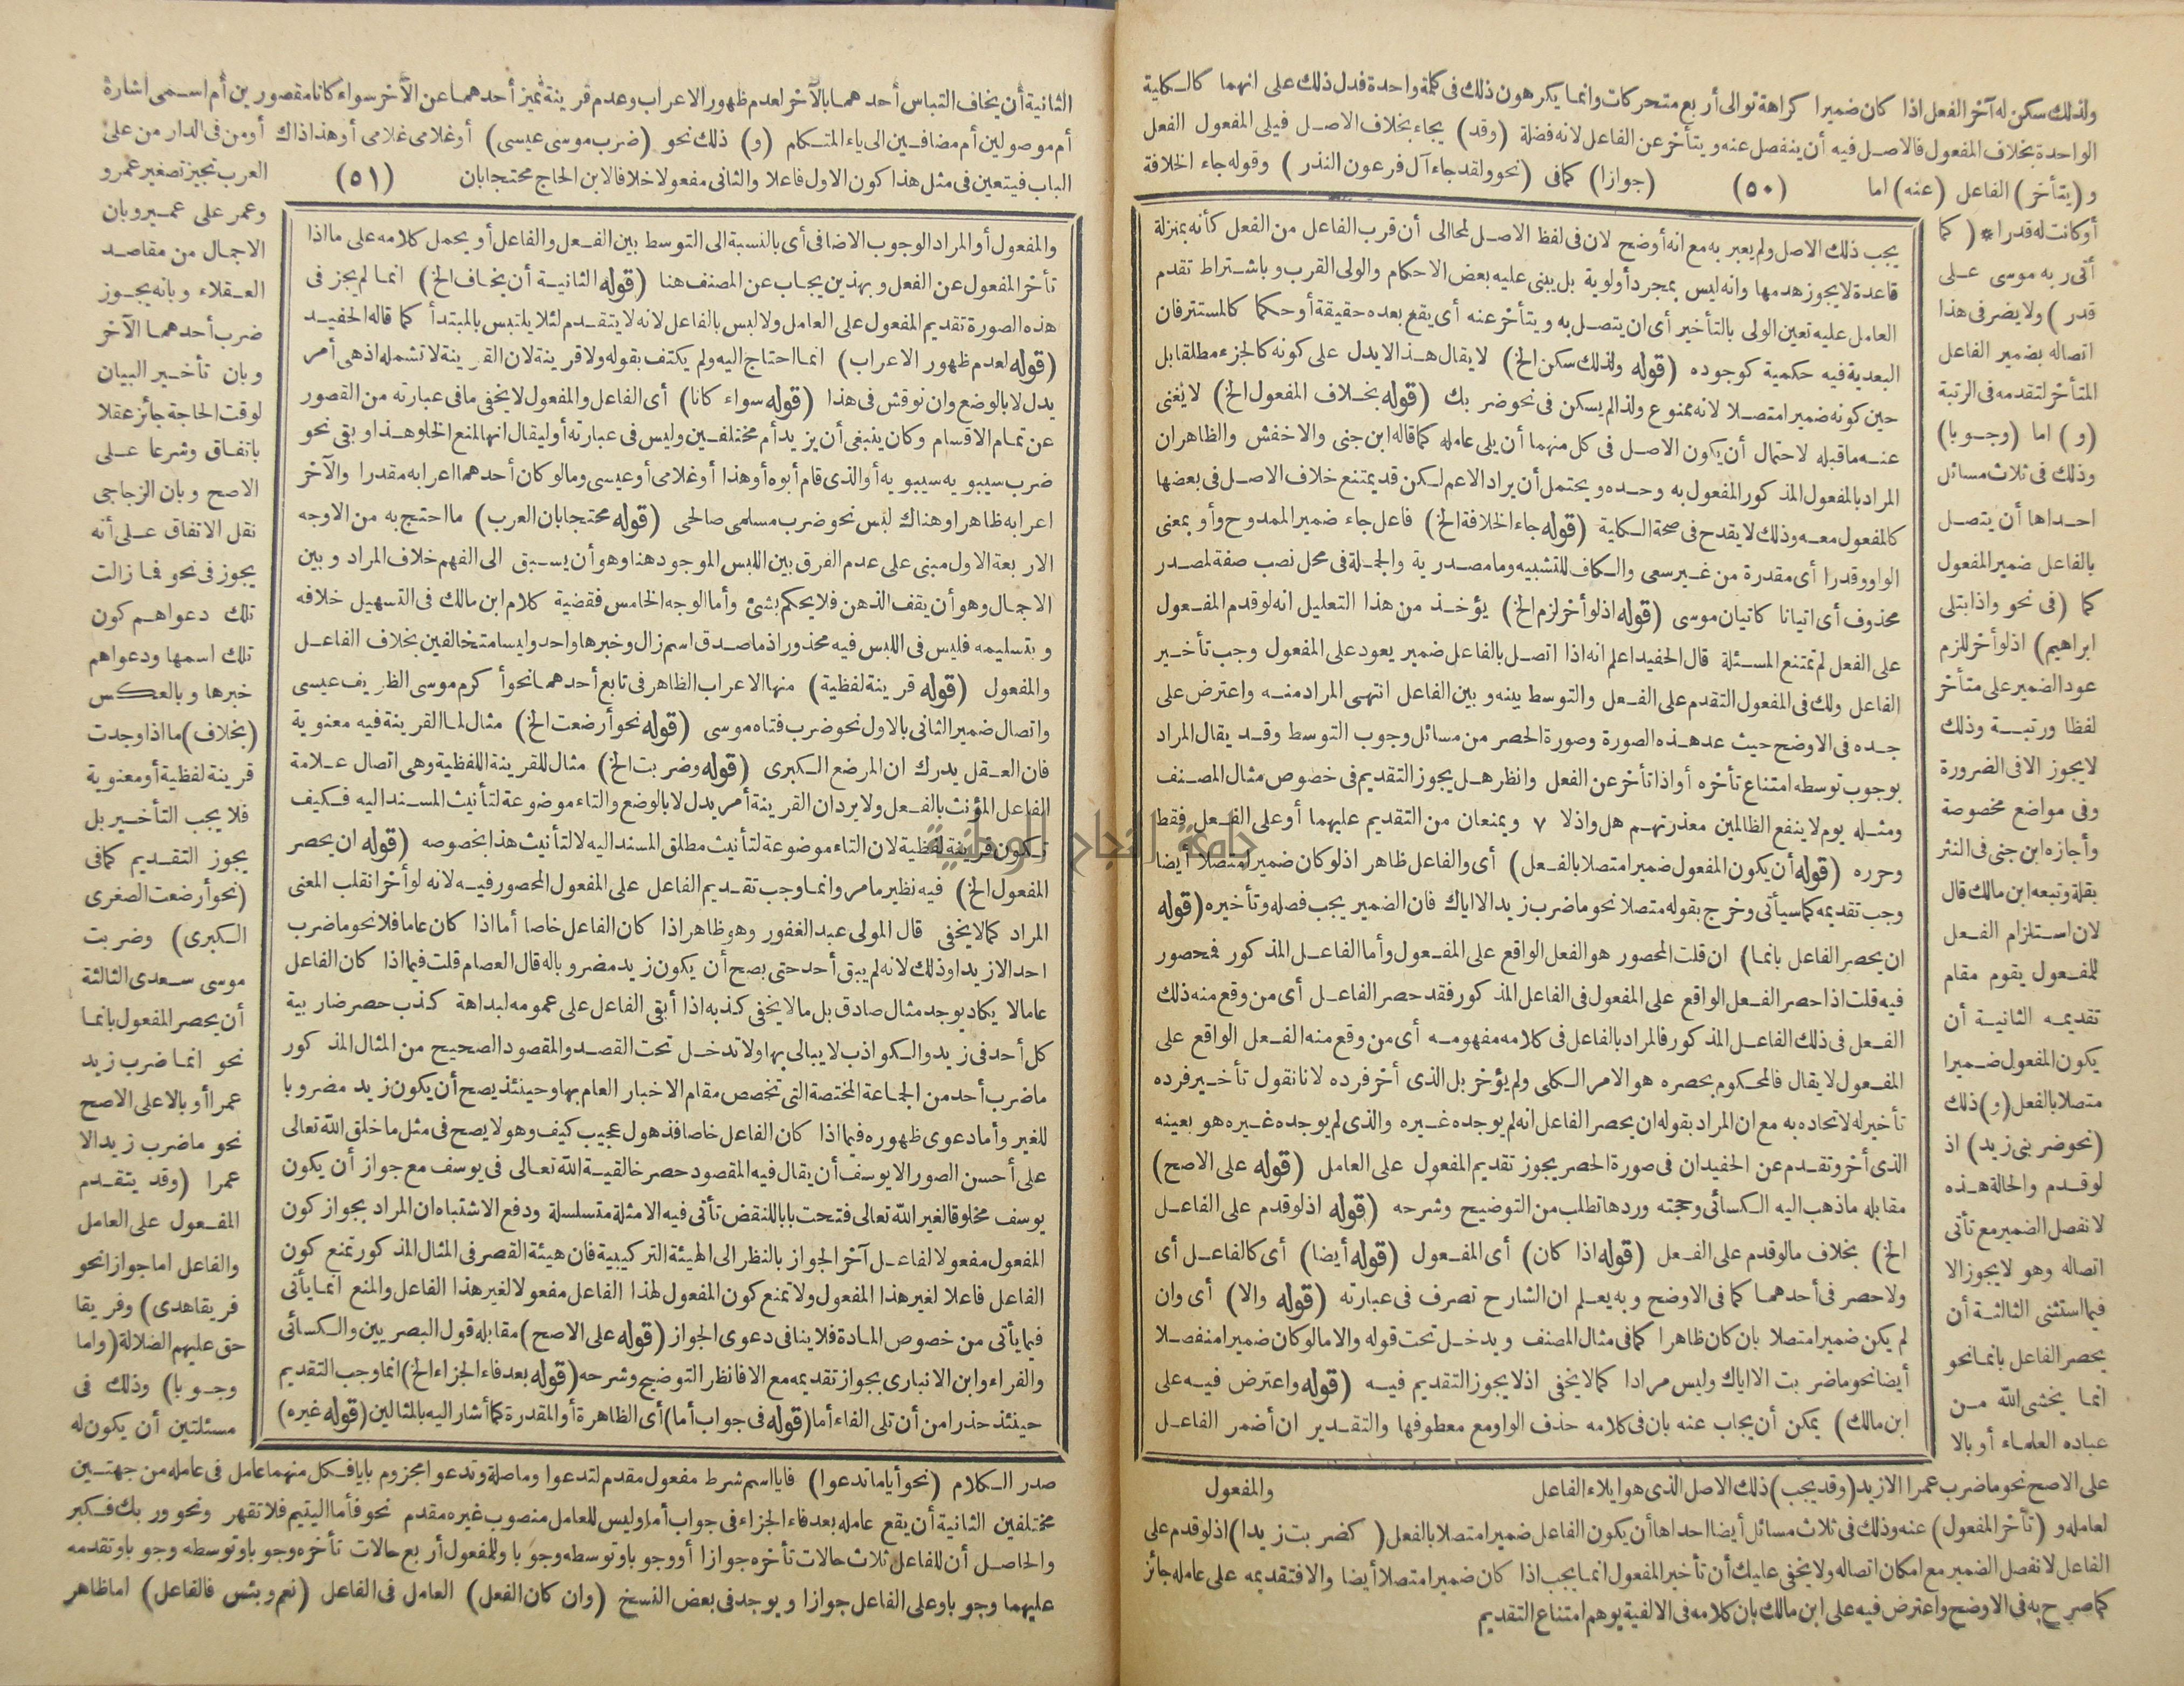 ولذلك سكن له آخر الفعل اذا كان ضميرا كراهة توالى أربع متحركات وانما يكرهون ذلك فى كلمة واحدة فدل ذلك على انهما كالكلمة
الواحدة بخلاف المفعول فالاصل فيه أن ينفصل عنه ويتأخر عن الفاعل لانه فضلة (وقد) يجاء بخلاف الاصل فيلى المفعول الفعل
و(يتأخر) الفاعل (عنه) اما (٥٠) (جوازا) كمافى (نحوولقد جاء آل فرعون النذر) وقوله جاء الخلافة
أوكانت له قدرا * (كما
أتى ربه موسى على
قدر) ولا يضر فى هذا
اتصاله بضمير الفاعل
المتأخر لتقدمه فى الرتبة
(و) اما (وجوبا)
وذلك فى ثلاث مسائل
احداها أن يتصل
بالفاعل ضمير المفعول
كما (فى نحو واذ ابتلى
ابراهيم) اذ لو أخر للزم
عود الضمير على متأخر
لفظا ورتبة وذلك
لا يجوز الا فى الضرورة
وفى مواضع مخصوصة
وأجازه ابن جنى فى النثر
بقلة وتبعه ابن مالك قال
لان استلزام الفعل
للمفعول يقوم مقام
تقديمه الثانية أن
يكون المفعول ضميرا
متصلا بالفعل (و) ذلك
(نحو ضربنى زيد) اذ
لو قدم والحالة هذه
لانفصل الضمير مع تأتى
اتصاله وهو لا يجوز الا
فيما استثنى الثالثة أن
يحصر الفاعل بانما نحو
انما يخشى الله من
عباده العلماء أو بالا
يجب ذلك الاصل ولم يعبر به مع انه أوضح لان فى لفظ الاصل لمحا الى أن قرب الفاعل من الفعل كأنه بمنزلة
قاعدة لا يجوز هدمها وانه ليس بمجرد أولوية بل يبنى عليه بعض الاحكام والولى القرب وباشتراط تقدم
العامل عليه تعين الولى بالتأخير أى ان يتصل به ويتأخر عنه أى يقع بعده حقيقة أو حكما كالمستتر فان
البعدية فيه حكمية كوجوده (قوله ولذلك سكن الخ) لا يقال هذا لا يدل على كونه كالجزء مطلقا بل
حين كونه ضميرا متصلا لانه ممنوع ولذا لم يسكن فى نحو ضربك (قوله بخلاف المفعول الخ) لا يغنى
عنه ما قبله لاحتمال أن يكون الاصل فى كل منهما أن يلى عامله كما قاله ابن جنى والاخفش والظاهر ان
المراد بالمفعول المذكور المفعول به وحده ويحتمل أن يراد الاعم لكن قد يمتنع خلاف الاصل فى بعضها
كالمفعول معه وذلك لا يقدح فى صحة الكلية (قوله جاء الخلافة الخ) فاعل جاء ضمير الممدوح وأو بمعنى
الواو وقدرا أى مقدرة من غير سعى والكاف للتشبيه وما مصدرية والجملة فى محل نصب صفة لمصدر
محذوف أى اتيانا كاتيان موسى (قوله اذ لو أخر لزم الخ) يؤخذ من هذا التعليل انه لو قدم المفعول
على الفعل لم تمتنع المسئلة قال الحفيد اعلم انه اذا اتصل بالفاعل ضمير يعود على المفعول وجب تأخير
الفاعل ولك فى المفعول التقدم على الفعل والتوسط بينه وبين الفاعل انتهى المراد منه واعترض على
جده فى الاوضح حيث عد هذه الصورة وصورة الحصر من مسائل وجوب التوسط وقد يقال المراد
بوجوب توسطه امتناع تأخره أو اذا تأخر عن الفعل وانظر هل يجوز التقديم فى خصوص مثال المصنف
ومثله يوم لا ينفع الظالمين معذرتهم هل واذ لا ٧ ويمنعان من التقديم عليهما أو على الفعل فقط
وحرره (قوله أن يكون المفعول ضميرا متصلا بالفعل) أى والفاعل ظاهر اذ لو كان ضميرا متصلا أيضا
وجب تقديمه كما سيأتى وخرج بقوله متصلا نحو ما ضرب زيد الا اياك فان الضمير يجب فصله وتأخيره (قوله
ان يحصر الفاعل بانما) ان قلت المحصور هو الفعل الواقع على المفعول وأما الفاعل المذكور فمحصور
فيه قلت اذا حصر الفعل الواقع على المفعول فى الفاعل المذكور فقد حصر الفاعل أى من وقع منه ذلك
الفعل فى ذلك الفاعل المذكور فالمراد بالفاعل فى كلامه مفهومه أى من وقع منه الفعل الواقع على
المفعول لا يقال فالمحكوم بحصره هو الامر الكلى ولم يؤخر بل الذى أخر فرده لانا نقول تأخير فرده
تأخير له لاتحاده به مع ان المراد بقوله ان يحصر الفاعل انه لم يوجده غيره والذى لم يوجده غيره هو بعينه
الذى أخر وتقدم عن الحفيد ان فى صورة الحصر يجوز تقديم المفعول على العامل (قوله على الاصح)
مقابله ما ذهب اليه الكسائى وحجته وردها تطلب من التوضيح وشرحه (قوله اذ لو قدم على الفاعل
الخ) بخلاف ما لو قدم على الفعل (قوله اذا كان) أى المفعول (قوله أيضا) أى كالفاعل أى
ولا حصر فى أحدهما كما فى الاوضح وبه يعلم ان الشارح تصرف فى عبارته (قوله والا) أى وان
لم يكن ضميرا متصلا بان كان ظاهرا كما فى مثال المصنف ويدخل تحت قوله والا ما لو كان ضميرا منفصلا
أيضا نحو ما ضربت الا اياك وليس مرادا كما لا يخفى اذ لا يجوز التقديم فيه (قوله واعترض فيه على
ابن مالك) يمكن أن يجاب عنه بان فى كلامه حذف الواو مع معطوفها والتقدير ان أضمر الفاعل
على الاصح نحو ما ضرب عمرا الا زيد (وقد يجب) ذلك الاصل الذى هو ايلاء الفاعل والمفعول
لعامله و(تأخر المفعول) عنه وذلك فى ثلاث مسائل أيضا احداها أن يكون الفاعل ضميرا متصلا بالفعل (كضربت زيدا) اذ لو قدم على
الفاعل لانفصل الضمير مع امكان اتصاله ولا يخفى عليك أن تأخير المفعول انما يجب اذا كان ضميرا متصلا أيضا والا فتقديمه على عامله جائز
كما صرح به فى الاوضح واعترض فيه على ابن مالك بان كلامه فى الالفية يوهم امتناع التقديم
الثانية أن يخاف التباس أحدهما بالآخر لعدم ظهور الاعراب وعدم قرينة تميز أحدهما عن الآخر سواء كانا مقصورين أم اسمى اشارة
أم موصولين أم مضافين الى ياء المتكلم (و) ذلك نحو (ضرب موسى عيسى) أو غلامى غلامى أو هذا ذاك أو من فى الدار من على
الباب فيتعين فى مثل هذا كون الاول فاعلا والثانى مفعولا خلافا لابن الحاج محتجا بان (٥١) العرب تجيز تصغير عمرو
وعمر على عمير وبان
الاجمال من مقاصد
العقلاء وبانه يجوز
ضرب أحدهما الآخر
وبان تأخير البيان
لوقت الحاجة جائز عقلا
باتفاق وشرعا على
الاصح وبان الزجاجى
نقل الاتفاق على أنه
يجوز فى نحو فما زالت
تلك دعواهم كون
تلك اسمها ودعواهم
خبرها وبالعكس
(بخلاف) ما اذا وجدت
قرينة لفظية أو معنوية
فلا يجب التأخير بل
يجوز التقديم كما فى
(نحو أرضعت الصغرى
الكبرى) وضربت
موسى سعدى الثالثة
أن يحصر المفعول بانما
نحو انما ضرب زيد
عمرا أو بالا على الاصح
نحو ما ضرب زيد الا
عمرا (وقد يتقدم
المفعول على العامل
والفاعل اما جوازا نحو
فريقا هدى) وفريقا
حق عليهم الضلالة (واما
وجوبا) وذلك فى
مسئلتين أن يكون له
والمفعول أو المراد الوجوب الاضافى أى بالنسبة الى التوسط بين الفعل والفاعل أو يحمل كلامه على ما اذا
تأخر المفعول عن الفعل وبهذين يجاب عن المصنف هنا (قوله الثانية أن يخاف الخ) انما لم يجز فى
هذه الصورة تقديم المفعول على العامل ولا لبس بالفاعل لانه لا يتقدم لئلا يلتبس بالمبتدأ كما قاله الحفيد
(قوله لعدم ظهور الاعراب) انما احتاج اليه ولم يكتف بقوله ولا قرينة لان القرينة لا تشمله اذ هى أمر
يدل لا بالوضع وان نوقش فى هذا (قوله سواء كانا) أى الفاعل والمفعول لا يخفى ما فى عبارته من القصور
عن تمام الاقسام وكان ينبغى أن يزيد أم مختلفين وليس فى عبارته أو ليقال انها لمنع الخلو هذا وبقى نحو
ضرب سيبويه سيبويه أو الذى قام أبوه أو هذا أو غلامى أو عيسى وما لو كان أحدهما اعرابه مقدرا والآخر
اعرابه ظاهرا وهناك لبس نحو ضرب مسلمى صالحى (قوله محتجا بان العرب) ما احتج به من الاوجه
الاربعة الاول مبنى على عدم الفرق بين اللبس الموجود هنا وهو أن يسبق الى الفهم خلاف المراد وبين
الاجمال وهو أن يقف الذهن فلا يحكم بشئ وأما الوجه الخامس فقضية كلام ابن مالك فى التسهيل خلافه
وبتسليمه فليس فى اللبس فيه محذور اذ ما صدق اسم زال وخبرها واحد وليسا متخالفين بخلاف الفاعل
والمفعول (قوله قرينة لفظية) منها الاعراب الظاهر فى تابع أحدهما نحو أكرم موسى الظريف عيسى
واتصال ضمير الثانى بالاول نحو ضرب فتاه موسى (قوله نحو أرضعت الخ) مثال لما القرينة فيه معنوية
فان العقل يدرك ان المرضع الكبرى (قوله وضربت الخ) مثال للقرينة اللفظية وهى اتصال علامة
الفاعل المؤنث بالفعل ولا يرد ان القرينة أمر يدل لا بالوضع والتاء موضوعة لتأنيث المسند اليه فكيف
تكون قرينة لفظية لان التاء موضوعة لتأنيث مطلق المسند اليه لا لتأنيث هذا بخصوصه (قوله ان يحصر
المفعول الخ) فيه نظير ما مر وانما وجب تقديم الفاعل على المفعول المحصور فيه لانه لو أخر انقلب المعنى
المراد كما لا يخفى قال المولى عبد الغفور وهو ظاهر اذا كان الفاعل خاصا أما اذا كان عاما فلا نحو ما ضرب
احد الا زيدا وذلك لانه لم يبق أحد حتى يصح أن يكون زيد مضروبا له قال العصام قلت فيما اذا كان الفاعل
عاما لا يكاد يوجد مثال صادق بل ما لا يخفى كذبه اذا أبقى الفاعل على عمومه لبداهة كذب حصر ضاربية
كل أحد فى زيد والكواذب لا يبالى بها ولا تدخل تحت القصد والمقصود الصحيح من المثال المذكور
ماضرب أحد من الجماعة المختصة التى تخصص مقام الاخبار العام بها وحينئذ يصح أن يكون زيد مضروبا
للغير وأما دعوى ظهوره فيما اذا كان الفاعل خاصا فذهول عجيب كيف وهو لا يصح فى مثل ما خلق الله تعالى
على أحسن الصور الا يوسف أن يقال فيه المقصود حصر خالقية الله تعالى فى يوسف مع جواز أن يكون
يوسف مخلوقا لغير الله تعالى فتحت بابا للنقض تأتى فيه الامثلة متسلسلة ودفع الاشتباه ان المراد بجواز كون
المفعول مفعولا لفاعل آخر الجواز بالنظر الى الهيئة التركيبية فان هيئة القصر فى المثال المذكور تمنع كون
الفاعل فاعلا لغير هذا المفعول ولا تمنع كون المفعول لهذا الفاعل مفعولا لغير هذا الفاعل والمنع انما يأتى
فيما يأتى من خصوص المادة فلا ينافى دعوى الجواز (قوله على الاصح) مقابله قول البصريين والكسائى
والفراء وابن الانبارى بجواز تقديمه مع الا فانظر التوضيح وشرحه (قوله بعد فاء الجزاء الخ) انما وجب التقديم
حينئذ حذرا من أن تلى الفاء أما (قوله فى جواب أما) أى الظاهرة أو المقدرة كما أشار اليه بالمثالين (قوله غيره)
صدر الكلام (نحو أيا ما تدعوا) فايا اسم شرط مفعول مقدم لتدعوا وما صلة وتدعوا مجزوم بايا فكل منهما عامل فى عامله من جهتين
مختلفتين الثانية أن يقع عامله بعد فاء الجزاء فى جواب أما وليس للعامل منصوب غيره مقدم نحو فأما اليتيم فلا تقهر ونحو وربك فكبر
والحاصل أن للفاعل ثلاث حالات تأخره جوازا أو وجوبا وتوسطه وجوبا وللمفعول أربع حالات تأخره وجوبا وتوسطه وجوبا وتقدمه
عليهما وجوبا وعلى الفاعل جوازا ويوجد فى بعض النسخ (وان كان الفعل) العامل فى الفاعل (نعم وبئس فالفاعل) اما ظاهر
جامعة النجاح الوطنية